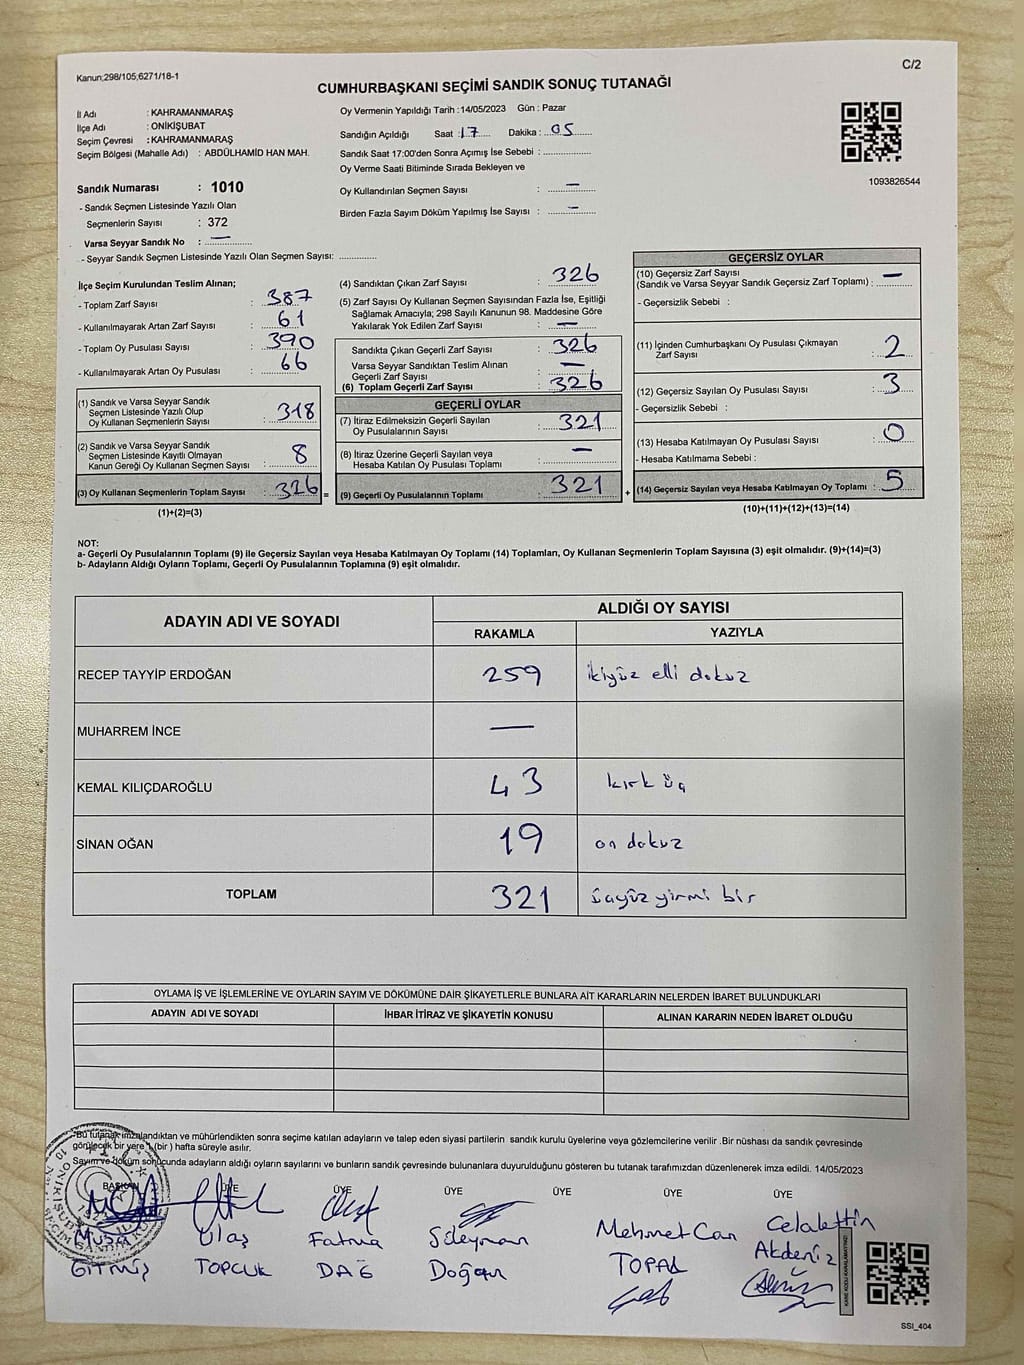 Kanun;298/105;6271/18-1
C/2
CUMHURBAŞKANI SEÇİMİ SANDIK SONUÇ TUTANAĞI
İl Adı : KAHRAMANMARAŞ
İlçe Adı : ONİKİŞUBAT
Seçim Çevresi : KAHRAMANMARAŞ
Seçim Bölgesi (Mahalle Adı) : ABDÜLHAMİD HAN MAH.
Oy Vermenin Yapıldığı Tarih : 14/05/2023 Gün : Pazar
Sandığın Açıldığı Saat : 17 Dakika : 05
Sandık Saat 17:00'den Sonra Açılmış İse Sebebi :
Oy Verme Saati Bitiminde Sırada Bekleyen ve
Oy Kullandırılan Seçmen Sayısı : —
Birden Fazla Sayım Döküm Yapılmış İse Sayısı : —
1093826544
Sandık Numarası : 1010
- Sandık Seçmen Listesinde Yazılı Olan
Seçmenlerin Sayısı : 372
Varsa Seyyar Sandık No : —
- Seyyar Sandık Seçmen Listesinde Yazılı Olan Seçmen Sayısı:
İlçe Seçim Kurulundan Teslim Alınan;
- Toplam Zarf Sayısı : 387
- Kullanılmayarak Artan Zarf Sayısı : 61
- Toplam Oy Pusulası Sayısı : 390
- Kullanılmayarak Artan Oy Pusulası : 66
(1) Sandık ve Varsa Seyyar Sandık
Seçmen Listesinde Yazılı Olup
Oy Kullanan Seçmenlerin Sayısı : 318
(2) Sandık ve Varsa Seyyar Sandık
Seçmen Listesinde Kayıtlı Olmayan
Kanun Gereği Oy Kullanan Seçmen Sayısı : 8
(3) Oy Kullanan Seçmenlerin Toplam Sayısı : 326 =
(1)+(2)=(3)
(4) Sandıktan Çıkan Zarf Sayısı : 326
(5) Zarf Sayısı Oy Kullanan Seçmen Sayısından Fazla İse, Eşitliği
Sağlamak Amacıyla; 298 Sayılı Kanunun 98. Maddesine Göre
Yakılarak Yok Edilen Zarf Sayısı : —
Sandıkta Çıkan Geçerli Zarf Sayısı : 326
Varsa Seyyar Sandıktan Teslim Alınan
Geçerli Zarf Sayısı : —
(6) Toplam Geçerli Zarf Sayısı : 326
GEÇERLİ OYLAR
(7) İtiraz Edilmeksizin Geçerli Sayılan
Oy Pusulalarının Sayısı : 321
(8) İtiraz Üzerine Geçerli Sayılan veya
Hesaba Katılan Oy Pusulası Toplamı : —
(9) Geçerli Oy Pusulalarının Toplamı : 321 +
GEÇERSİZ OYLAR
(10) Geçersiz Zarf Sayısı
(Sandık ve Varsa Seyyar Sandık Geçersiz Zarf Toplamı) : —
- Geçersizlik Sebebi :
(11) İçinden Cumhurbaşkanı Oy Pusulası Çıkmayan
Zarf Sayısı : 2
(12) Geçersiz Sayılan Oy Pusulası Sayısı : 3
- Geçersizlik Sebebi :
(13) Hesaba Katılmayan Oy Pusulası Sayısı : 0
- Hesaba Katılmama Sebebi :
(14) Geçersiz Sayılan veya Hesaba Katılmayan Oy Toplamı : 5
(10)+(11)+(12)+(13)=(14)
NOT:
a- Geçerli Oy Pusulalarının Toplamı (9) ile Geçersiz Sayılan veya Hesaba Katılmayan Oy Toplamı (14) Toplamları, Oy Kullanan Seçmenlerin Toplam Sayısına (3) eşit olmalıdır. (9)+(14)=(3)
b- Adayların Aldığı Oyların Toplamı, Geçerli Oy Pusulalarının Toplamına (9) eşit olmalıdır.
ADAYIN ADI VE SOYADI ALDIĞI OY SAYISI
RAKAMLA YAZIYLA
RECEP TAYYİP ERDOĞAN 259 ikiyüz elli dokuz
MUHARREM İNCE —
KEMAL KILIÇDAROĞLU 43 kırk üç
SİNAN OĞAN 19 on dokuz
TOPLAM 321 üçyüz yirmi bir
OYLAMA İŞ VE İŞLEMLERİNE VE OYLARIN SAYIM VE DÖKÜMÜNE DAİR ŞİKAYETLERLE BUNLARA AİT KARARLARIN NELERDEN İBARET BULUNDUKLARI
ADAYIN ADI VE SOYADI İHBAR İTİRAZ VE ŞİKAYETİN KONUSU ALINAN KARARIN NEDEN İBARET OLDUĞU
Bu tutanak imzalandıktan ve mühürlendikten sonra seçime katılan adayların ve talep eden siyasi partilerin sandık kurulu üyelerine veya gözlemcilerine verilir .Bir nüshası da sandık çevresinde
görülecek bir yere 1(bir ) hafta süreyle asılır.
Sayım ve döküm sonucunda adayların aldığı oyların sayılarını ve bunların sandık çevresinde bulunanlara duyurulduğunu gösteren bu tutanak tarafımızdan düzenlenerek imza edildi. 14/05/2023
BAŞKAN ÜYE ÜYE ÜYE ÜYE ÜYE ÜYE
Musa Ulaş Fatma Süleyman Mehmet Can Celalettin
GİTMİŞ TOPCUK DAĞ Doğan TOPAL Akdeniz
SSI_404